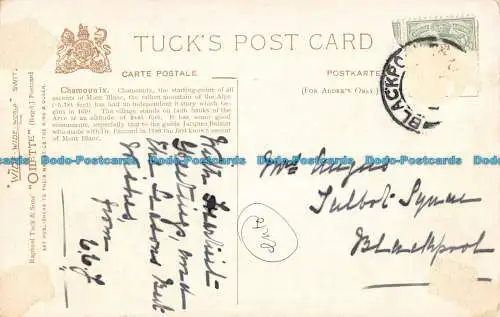 TUCK'S POST CARD
CARTE POSTALE
POSTKARTE
(FOR ADDRESS ONLY.)
Chamounix. Chamounix, the starting-point of all
ascents of Mont Blanc, the tallest mountain of the Alps
has had an independent history which
The village stands on both banks of the
Arve at an altitude of feet. It has some good
monuments, especially that to the guide Jacques Balmat
who made with Dr. Paccard in 1786 the first known ascent
of Mont Blanc.
"WIDE-WIDE-WORLD" SWITZ
Raphael Tuck & Sons' "OILETTE" [Regd.] Postcard
ART PUBLISHERS TO THEIR MAJESTIES THE KING & QUEEN.
BLACKPO
With
Greetings, and
the Seasons Best
Wishes,
from
Mrs Angus
Talbot Square
Blackpool
Dodo-Postcards Dodo-Postcards Dodo-Postcards Dodo-Postcards